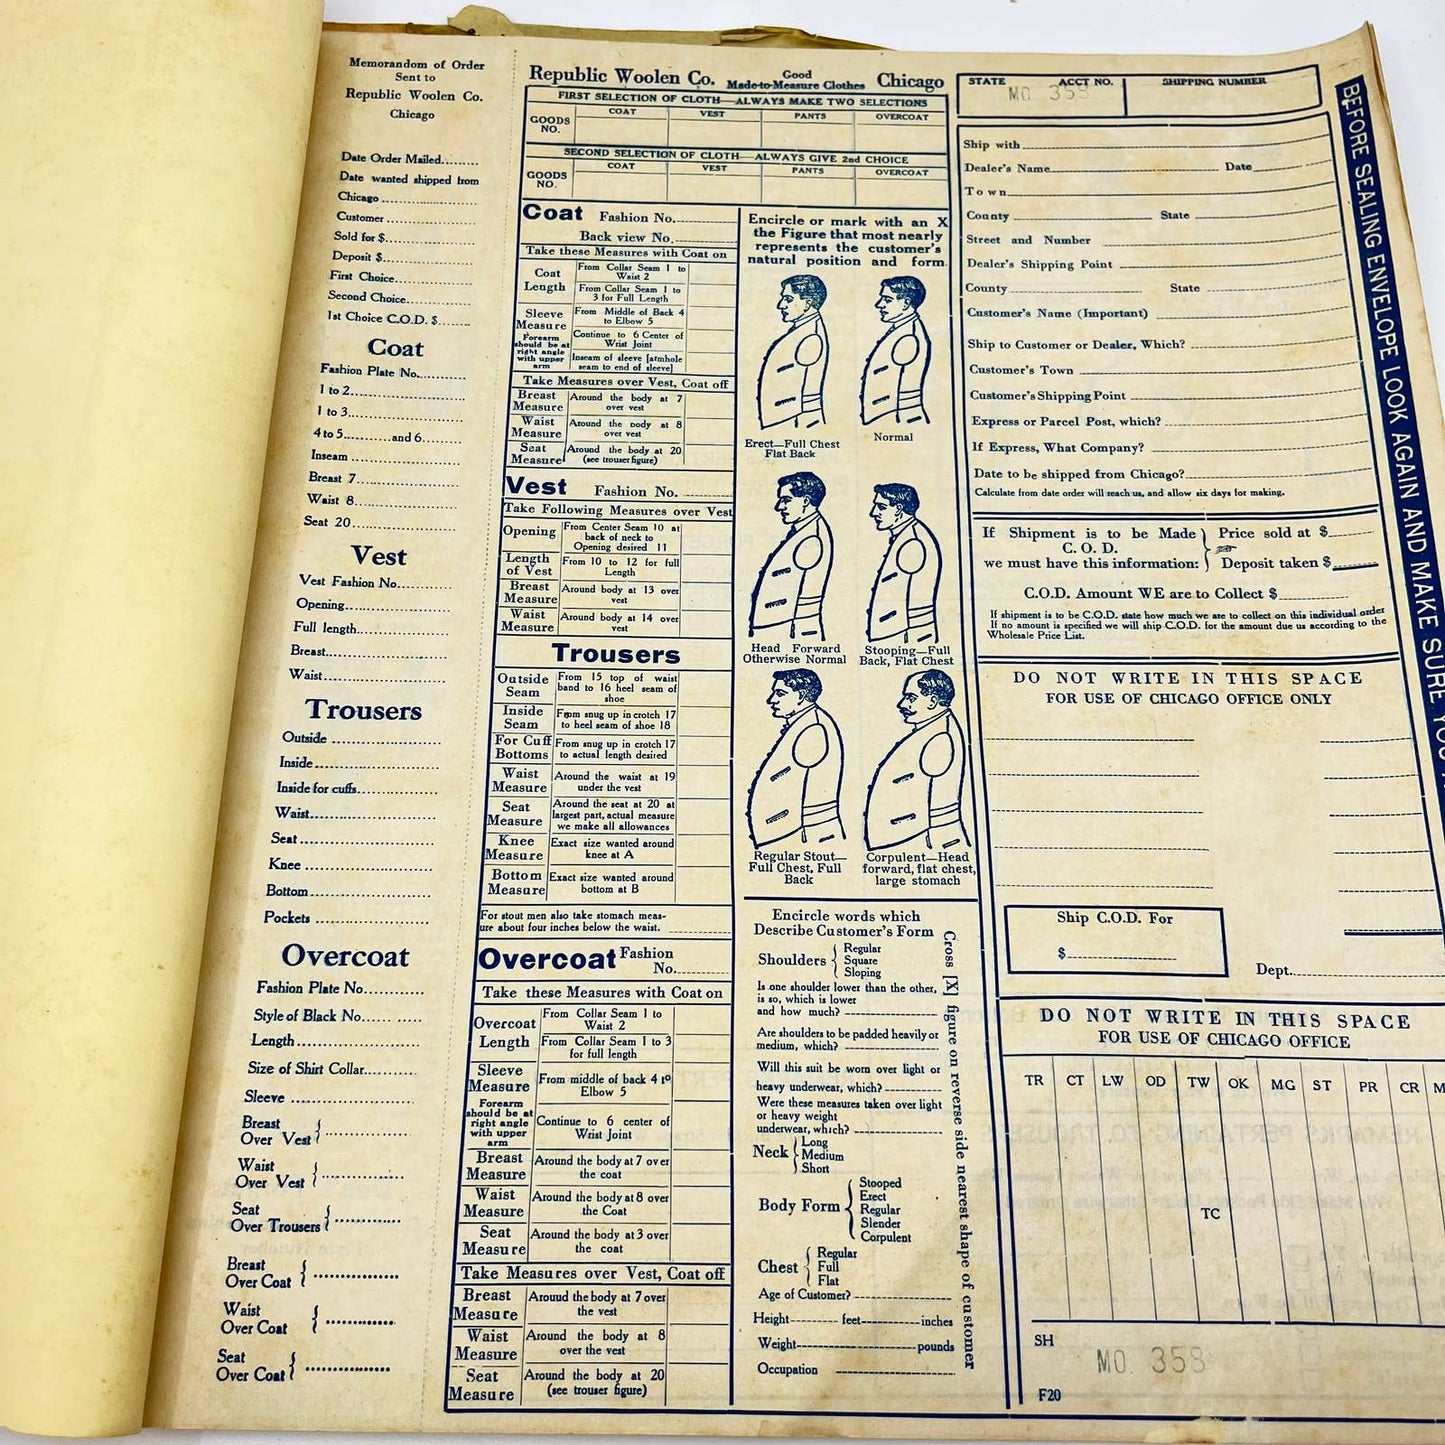 Memorandom of Order
Sent to
Republic Woolen Co.
Chicago
Date Order Mailed
Date wanted shipped from
Chicago
Customer
Sold for $
Deposit $
First Choice
Second Choice
1st Choice C.O.D. $
Coat
Fashion Plate No.
1 to 2
1 to 3
4 to 5 and 6
Inseam
Breast 7
Waist 8
Seat 20
Vest
Vest Fashion No.
Opening
Full length
Breast
Waist
Trousers
Outside
Inside
Inside for cuffs
Waist
Seat
Knee
Bottom
Pockets
Overcoat
Fashion Plate No.
Style of Black No.
Length
Size of Shirt Collar
Sleeve
Breast
Over Vest
Waist
Over Vest
Seat
Over Trousers
Breast
Over Coat
Waist
Over Coat
Seat
Over Coat
Republic Woolen Co. Good Made-to-Measure Clothes Chicago
FIRST SELECTION OF CLOTH—ALWAYS MAKE TWO SELECTIONS
GOODS NO. COAT VEST PANTS OVERCOAT
SECOND SELECTION OF CLOTH—ALWAYS GIVE 2nd CHOICE
GOODS NO. COAT VEST PANTS OVERCOAT
Coat Fashion No.
Back view No.
Take these Measures with Coat on
Coat Length From Collar Seam 1 to Waist 2
From Collar Seam 1 to 3 for Full Length
Sleeve Measure From Middle of Back 4 to Elbow 5
Forearm should be at right angle with upper arm
Continue to 6 Center of Wrist Joint
Inseam of sleeve [armhole seam to end of sleeve]
Take Measures over Vest, Coat off
Breast Measure Around the body at 7 over vest
Waist Measure Around the body at 8 over vest
Seat Measure Around the body at 20 (see trouser figure)
Vest Fashion No.
Take Following Measures over Vest
Opening From Center Seam 10 at back of neck to Opening desired 11
Length of Vest From 10 to 12 for full Length
Breast Measure Around body at 13 over vest
Waist Measure Around body at 14 over vest
Trousers
Outside Seam From 15 top of waist band to 16 heel seam of shoe
Inside Seam From snug up in crotch 17 to heel seam of shoe 18
For Cuff Bottoms From snug up in crotch 17 to actual length desired
Waist Measure Around the waist at 19 under the vest
Seat Measure Around the seat at 20 at largest part, actual measure we make all allowances
Knee Measure Exact size wanted around knee at A
Bottom Measure Exact size wanted around bottom at B
For stout men also take stomach meas-
ure about four inches below the waist.
Overcoat Fashion No.
Take these Measures with Coat on
Overcoat Length From Collar Seam 1 to Waist 2
From Collar Seam 1 to 3 for full length
Sleeve Measure From middle of back 4 to Elbow 5
Forearm should be at right angle with upper arm
Continue to 6 center of Wrist Joint
Breast Measure Around the body at 7 over the coat
Waist Measure Around the body at 8 over the Coat
Seat Measure Around the body at 3 over the coat
Take Measures over Vest, Coat off
Breast Measure Around the body at 7 over the vest
Waist Measure Around the body at 8 over the vest
Seat Measure Around the body at 20 (see trouser figure)
Encircle or mark with an X
the Figure that most nearly
represents the customer's
natural position and form
Erect—Full Chest
Flat Back
Normal
Head Forward
Otherwise Normal
Stooping—Full
Back, Flat Chest
Regular Stout—
Full Chest, Full
Back
Corpulent—Head
forward, flat chest,
large stomach
Encircle words which
Describe Customer's Form
Shoulders Regular
Square
Sloping
Is one shoulder lower than the other,
is so, which is lower
and how much?
Are shoulders to be padded heavily or
medium, which?
Will this suit be worn over light or
heavy underwear, which?
Were these measures taken over light
or heavy weight
underwear, which?
Neck Long
Medium
Short
Body Form Stooped
Erect
Regular
Slender
Corpulent
Chest Regular
Full
Flat
Age of Customer?
Height feet inches
Weight pounds
Occupation
Cross [X] figure on reverse side nearest shape of customer
STATE ACCT NO. SHIPPING NUMBER
MO 358
Ship with
Dealer's Name Date
Town
County State
Street and Number
Dealer's Shipping Point
County State
Customer's Name (Important)
Ship to Customer or Dealer, Which?
Customer's Town
Customer's Shipping Point
Express or Parcel Post, which?
If Express, What Company?
Date to be shipped from Chicago?
Calculate from date order will reach us, and allow six days for making.
If Shipment is to be Made
C. O. D.
we must have this information:
Price sold at $
Deposit taken $
C.O.D. Amount WE are to Collect $
If shipment is to be C.O.D. state how much we are to collect on this individual order
If no amount is specified we will ship C.O.D. for the amount due us according to the
Wholesale Price List.
DO NOT WRITE IN THIS SPACE
FOR USE OF CHICAGO OFFICE ONLY
Ship C.O.D. For
$
Dept.
DO NOT WRITE IN THIS SPACE
FOR USE OF CHICAGO OFFICE
TR CT LW OD TW OK MG ST PR CR M
TC
SH
MO. 358
F20
BEFORE SEALING ENVELOPE LOOK AGAIN AND MAKE SURE